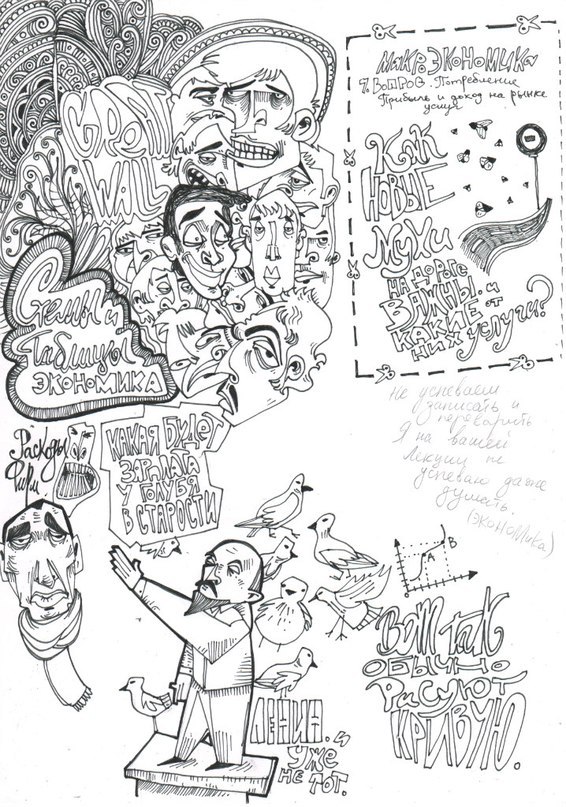 GREAT
WALL
Схемы и
Таблицы
ЭКОНОМИКА
МикроЭКОНОМИКА
9. ВОПРОС. Потребление
Прибыль и доход на рынке
услуг
КАК
НОВЫЕ
МУХИ
НА ДОРОГЕ
ВАЖНЫ. и
КАКИЕ ОТ
НИХ УСЛУГИ?
Не успеваем
записать и
переварить
Я на вашей
лекции не
успеваю даже
думать.
(ЭКОНОМИКА)
Расходы
Фирм
КАКАЯ БУДЕТ
ЗАРПЛАТА
У ГОЛУБЯ
В СТАРОСТИ
A
B
ВОТ так
ОБЫЧНО
РИСУЮТ
КРИВУЮ.
ЛЕНИН. и
УЖЕ
НЕ ТОТ.